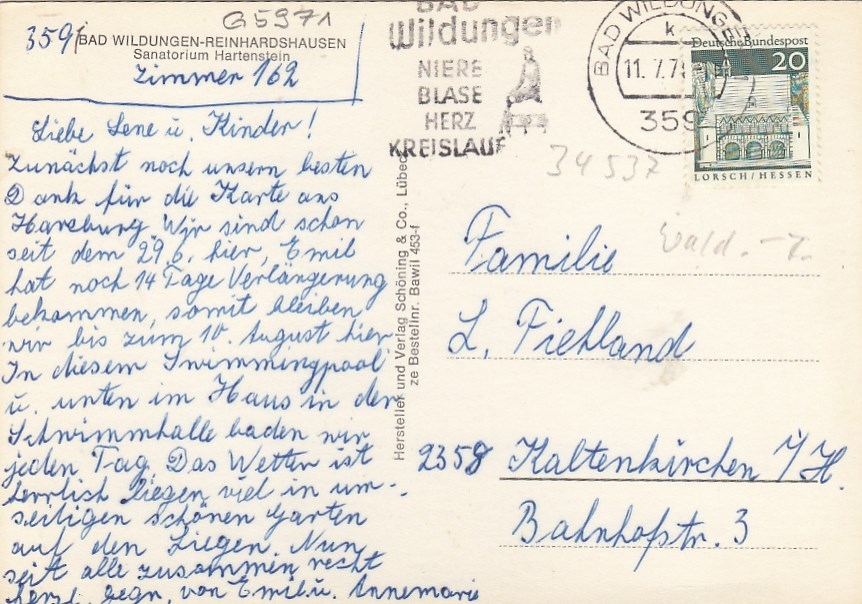 G5971
359/BAD WILDUNGEN-REINHARDSHAUSEN
Sanatorium Hartenstein
Zimmer 162
Liebe Lene u. Kinder!
Zunächst noch unsern besten
Dank für die Karte aus
Harzburg. Wir sind schon
seit dem 29.6. hier, Emil
hat noch 14 Tage Verlängerung
bekommen, somit bleiben
wir bis zum 10. August hier
In diesem Swimmingpool
u. unten im Haus in der
Schwimmhalle baden wir
jeden Tag. Das Wetter ist
herrlich liegen viel in
schönen Garten
auf den Liegen. Nun
seit alle zusammen recht
herzl. gegr. von Emil u. Annemarie
Hersteller und Verlag Schöning & Co., Lübeck
ze Bestellnr. Bawil 453-f
BAD
Wildungen
NIERE
BLASE
HERZ
KREISLAUF
BAD WILDUNGEN
k
11.7.7
359
Deutsche Bundespost
20
LORSCH/HESSEN
34537
Wald.
Familie
L. Fiehland
2358 Kaltenkirchen i/H.
Bahnhofstr. 3